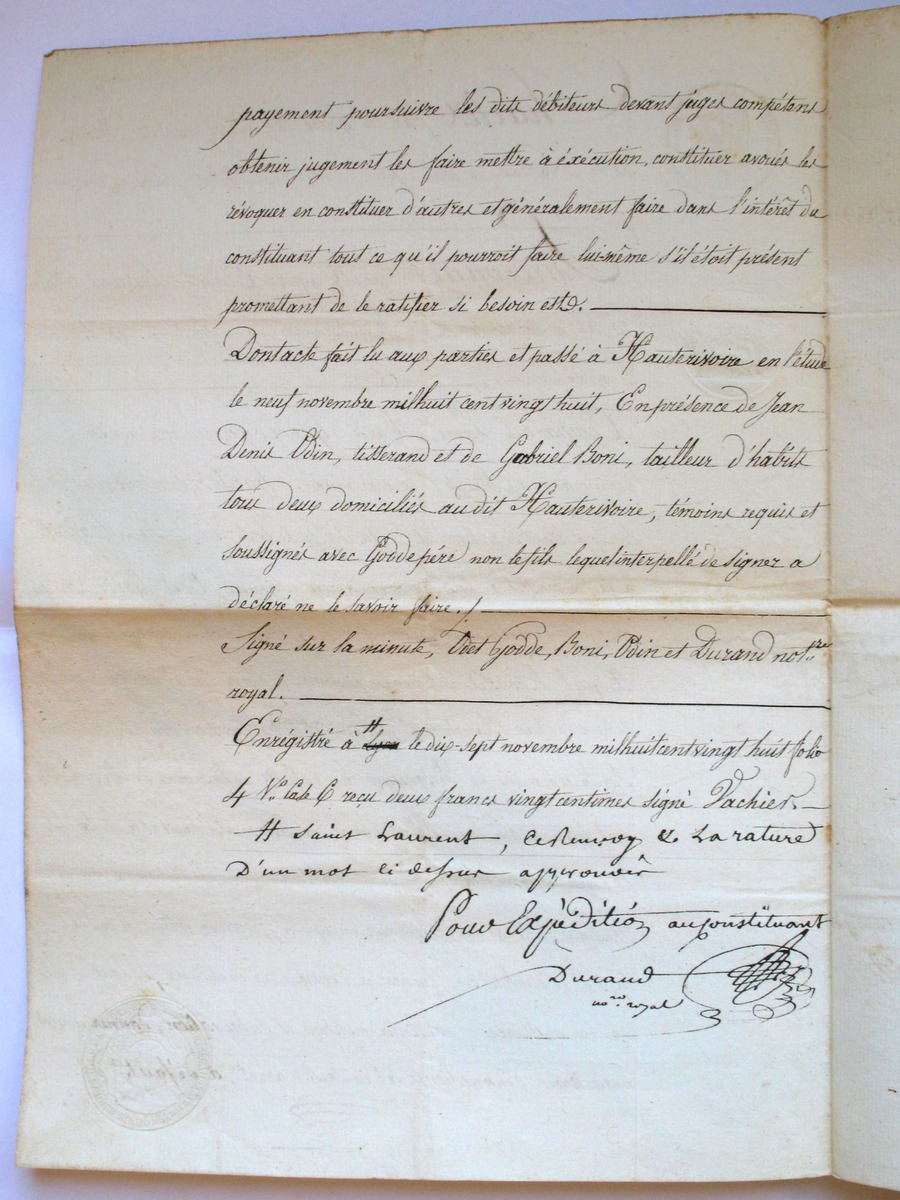 payement poursuivre les dits débiteurs devant juges compétens
obtenir jugement les faire mettre à éxécution, constituer avoués les
révoquer en constituer d'autres et généralement faire dans l'intérêt du
constituant tout ce qu'il pourroit faire lui-même s'il étoit présent
promettant de le ratifier si besoin est.
Dont acte fait lu aux parties et passé à Hauterivoire en l'étude
le neuf novembre mil huit cent vingt huit, En présence de Jean
Denis Odin, tisserand et de Gabriel Boni, tailleur d'habits
tous deux domiciliés au dit Hauterivoire, témoins requis et
soussignés avec Godde père non le fils lequel interpellé de signer a
déclaré ne le savoir faire. /
Signé sur la minute, Godde, Boni, Odin et Durand not.re
royal.
Enrégistré à # le dix-sept novembre mil huit cent vingt huit folio
4 V.o Case 6 reçu deux francs vingt centimes signé Vachier.
# Saint Laurent, ce Renvoy & La rature
D'un mot ci dessus approuvés
Pour Expédition au Constituant
Durand
no.re royal